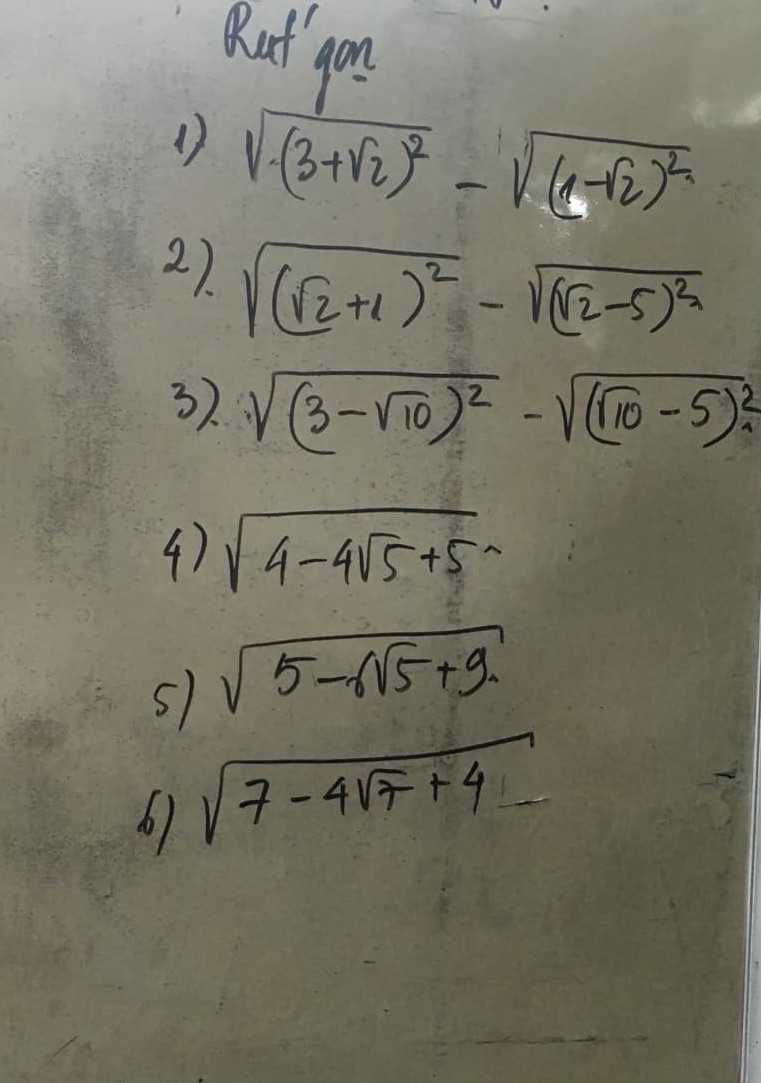 Rut' gọn
1) √(3+√2)² - √(1-√2)²
2) √(√2+1)² - √(√2-5)²
3) √(3-√10)² - √(√10-5)²
4) √4-4√5+5
5) √5-6√5+9
6) √7-4√7+4